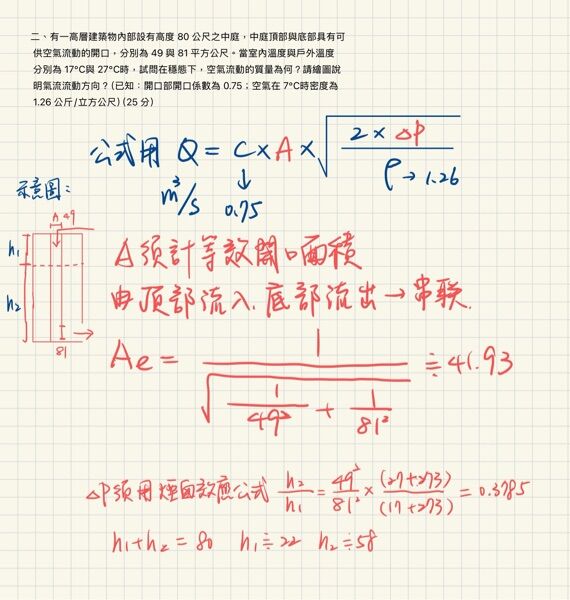 二、有一高層建築物內部設有高度 80 公尺之中庭，中庭頂部與底部具有可
供空氣流動的開口，分別為 49 與 81 平方公尺。當室內溫度與戶外溫度
分別為 17°C與 27°C時，試問在穩態下，空氣流動的質量為何？請繪圖說
明氣流流動方向？(已知：開口部開口係數為 0.75；空氣在 7°C時密度為
1.26 公斤/立方公尺) (25 分)
公式用 Q = C × A × √(2 × ΔP / ρ → 1.26)
m³/s ↓ 0.75
示意圖：
A 49
h₁
h₂
I →
81
A 須計等效開口面積
由頂部流入、底部流出 → 串联.
Ae = 1 / √(1/49² + 1/81²) ≒ 41.93
ΔP須用煙囪效應公式 h₂/h₁ = 49²/81² × (27+273)/(17+273) = 0.3785
h₁ + h₂ = 80 h₁ ≒ 22 h₂ ≒ 58